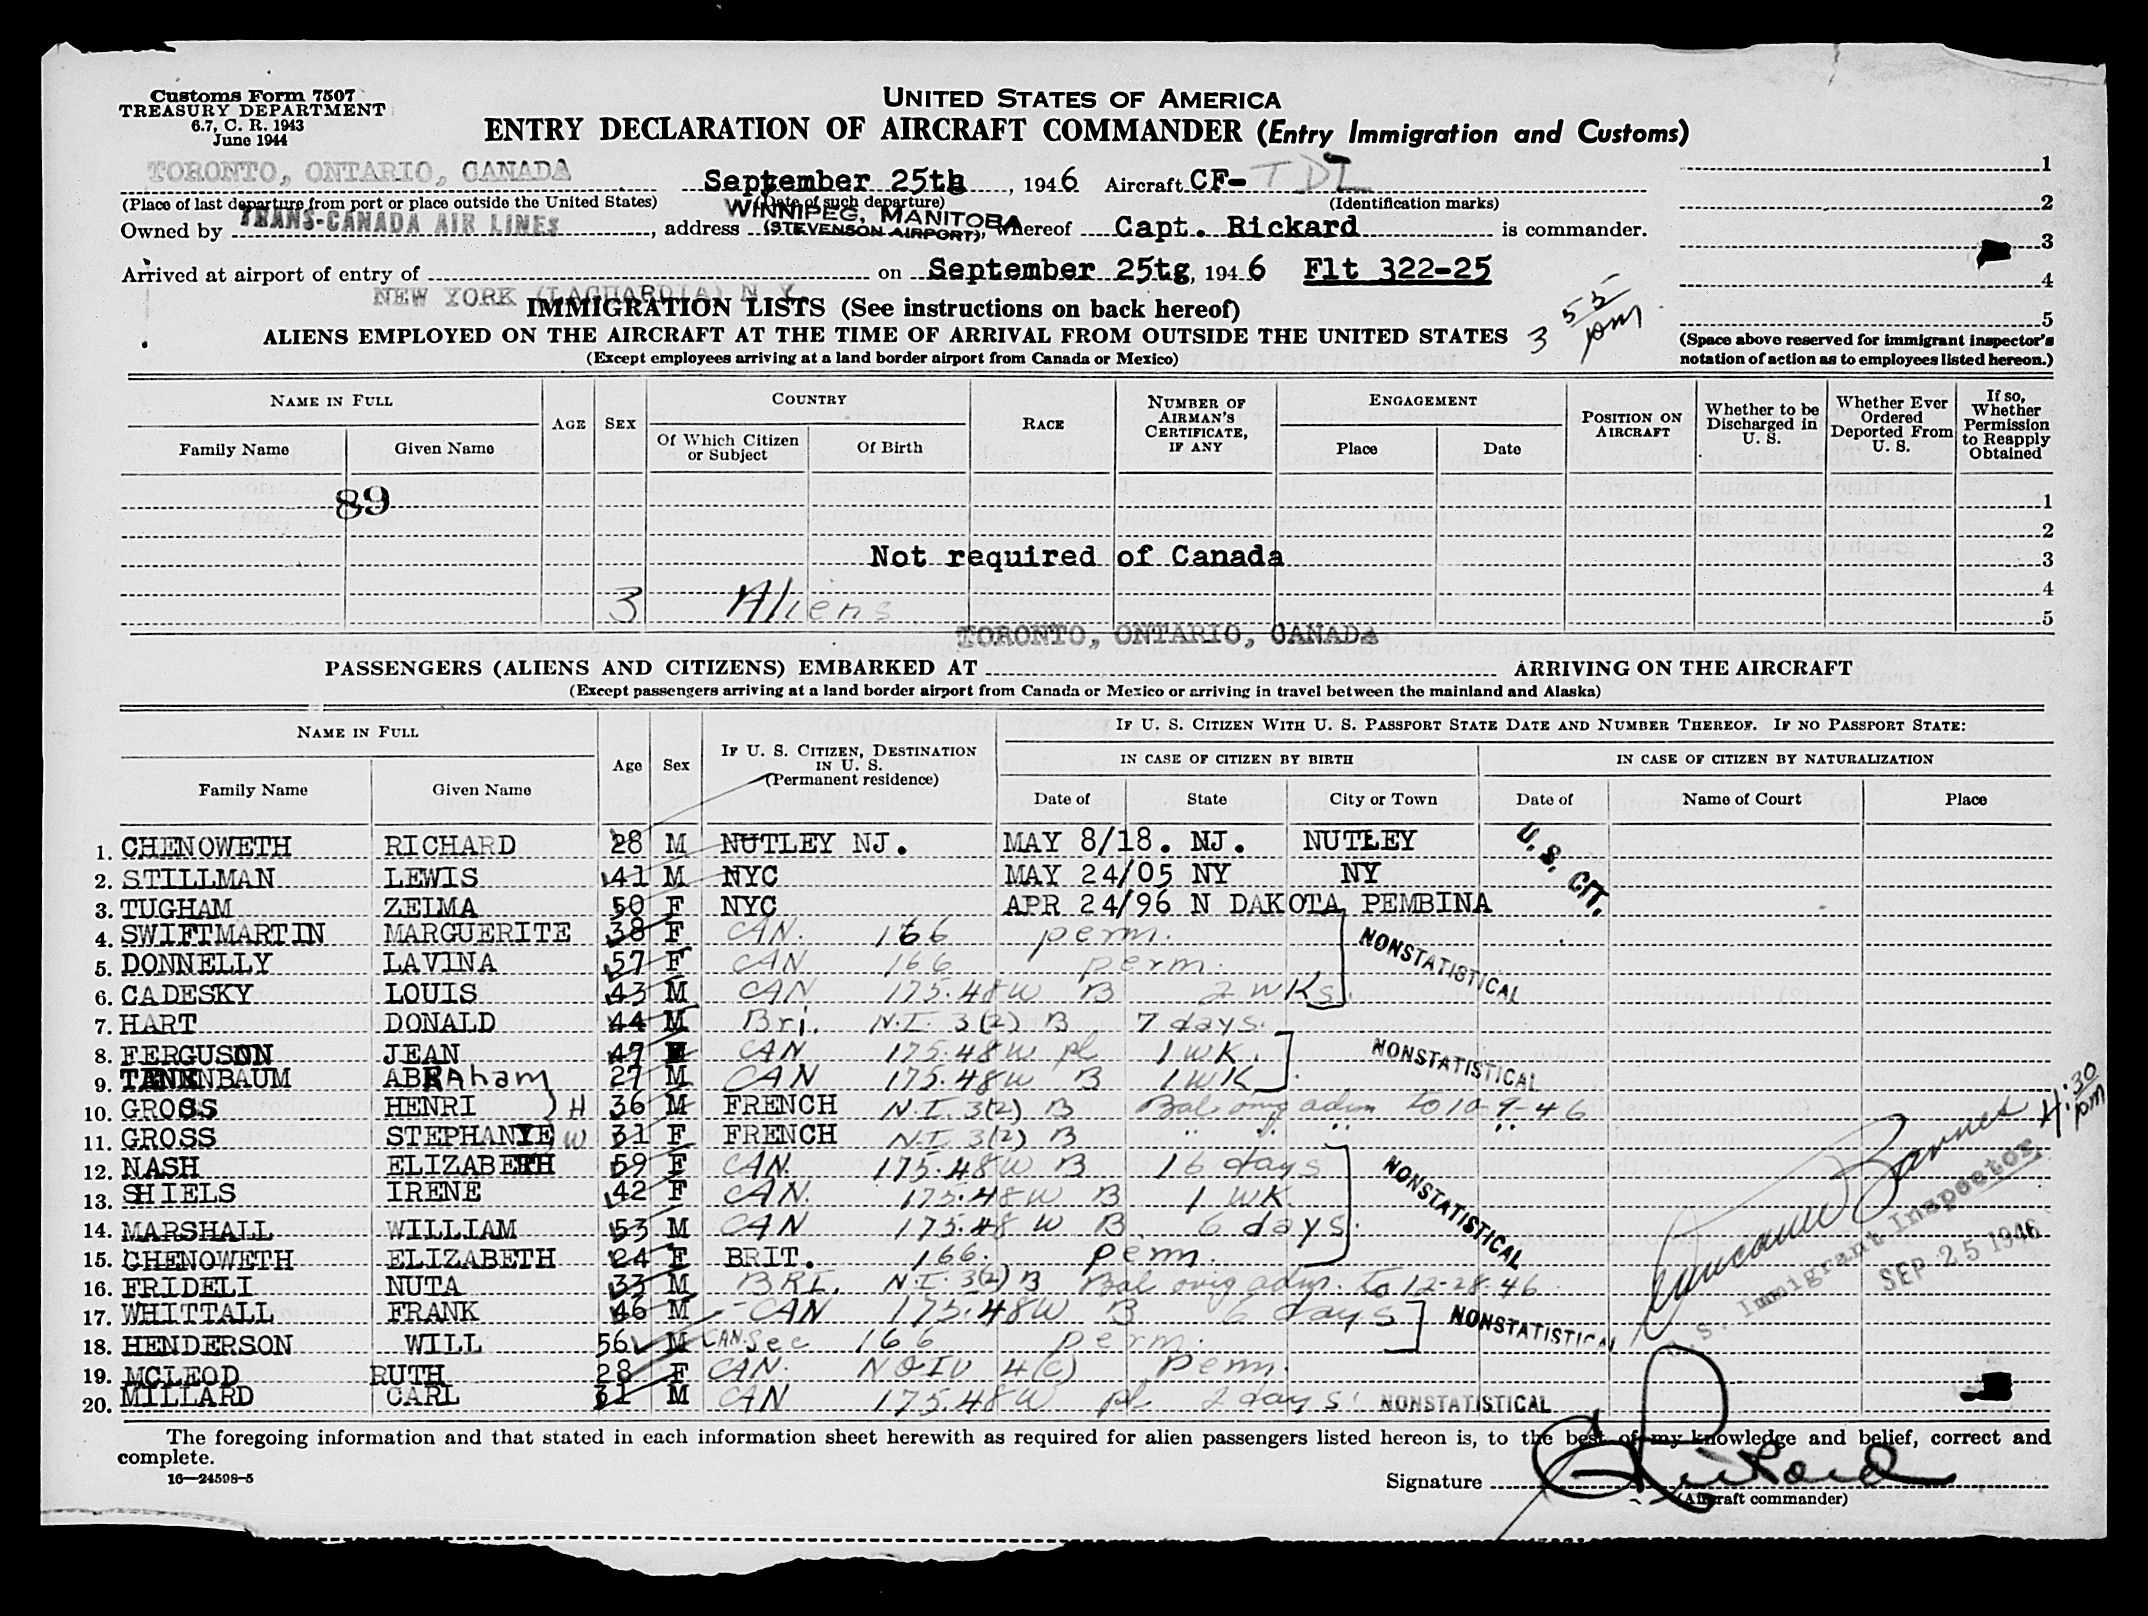 Customs Form 7507
TREASURY DEPARTMENT
6.7, C. R. 1943
June 1944
UNITED STATES OF AMERICA
ENTRY DECLARATION OF AIRCRAFT COMMANDER (Entry Immigration and Customs)
TORONTO, ONTARIO, CANADA September 25th, 1946 Aircraft CF-TDL 1
(Place of last departure from port or place outside the United States) (Date of such departure) (Identification marks) 2
Owned by TRANS-CANADA AIR LINES, address WINNIPEG, MANITOBA (STEVENSON AIRPORT), whereof Capt. Rickard is commander.
3
Arrived at airport of entry of NEW YORK (LAGUARDIA) N.Y. on September 25tg, 1946 Flt 322-25
4
IMMIGRATION LISTS (See instructions on back hereof)
3 55 pm
5
ALIENS EMPLOYED ON THE AIRCRAFT AT THE TIME OF ARRIVAL FROM OUTSIDE THE UNITED STATES
(Except employees arriving at a land border airport from Canada or Mexico)
(Space above reserved for immigrant inspector's notation of action as to employees listed hereon.)
NAME IN FULL AGE SEX COUNTRY RACE NUMBER OF AIRMAN'S CERTIFICATE, IF ANY ENGAGEMENT POSITION ON AIRCRAFT Whether to be Discharged in U. S. Whether Ever Ordered Deported From U. S. If so, Whether Permission to Reapply Obtained
Family Name Given Name Of Which Citizen or Subject Of Birth Place Date
89 1
2
Not required of Canada 3
4
3 Aliens 5
TORONTO, ONTARIO, CANADA
PASSENGERS (ALIENS AND CITIZENS) EMBARKED AT ARRIVING ON THE AIRCRAFT
(Except passengers arriving at a land border airport from Canada or Mexico or arriving in travel between the mainland and Alaska)
NAME IN FULL Age Sex IF U. S. CITIZEN, DESTINATION IN U. S. (Permanent residence) IF U. S. CITIZEN WITH U. S. PASSPORT STATE DATE AND NUMBER THEREOF. IF NO PASSPORT STATE:
IN CASE OF CITIZEN BY BIRTH IN CASE OF CITIZEN BY NATURALIZATION
Family Name Given Name Date of State City or Town Date of Name of Court Place
1. CHENOWETH RICHARD 28 M NUTLEY NJ. MAY 8/18. NJ. NUTLEY U. S. CIT.
2. STILLMAN LEWIS 41 M NYC MAY 24/05 NY NY
3. TUGHAM ZEIMA 50 F NYC APR 24/96 N DAKOTA PEMBINA
4. SWIFTMARTIN MARGUERITE 38 F CAN. 166 perm. NONSTATISTICAL
5. DONNELLY LAVINA 57 F CAN 166 perm.
6. CADESKY LOUIS 43 M CAN 175.48W B 2 wks
7. HART DONALD 44 M Bri. N.I. 3(2) B 7 days.
8. FERGUSON JEAN 47 F CAN 175.48W pl 1 WK. NONSTATISTICAL
9. TANNENBAUM ABRAham 27 M CAN 175.48W B 1 WK
10. GROSS HENRI ) H 36 M FRENCH N.I. 3(2) B Bal orig adm to 10-9-46
11. GROSS STEPHANIE W 31 F FRENCH N.I. 3(2) B " " " "
12. NASH ELIZABETH 59 F CAN. 175.48W B 16 days NONSTATISTICAL
13. SHIELS IRENE 42 F CAN. 175.48W B 1 WK
14. MARSHALL WILLIAM 53 M CAN 175.48 W B 6 days.
15. CHENOWETH ELIZABETH 24 F BRIT. 166. perm.
16. FRIDELI NUTA 33 M BRI. N.I. 3(2) B Bal orig adm. to 12-28-46
17. WHITTALL FRANK 46 M - CAN 175.48W B 6 days NONSTATISTICAL
18. HENDERSON WILL 56 M CAN. Sec 166 perm.
19. MCLEOD RUTH 28 F CAN. NQIV 4(c) perm.
20. MILLARD CARL 31 M CAN 175.48W pl 2 days NONSTATISTICAL
4:30 pm
Barnes
U.S. Immigrant Inspector
SEP 25 1946
The foregoing information and that stated in each information sheet herewith as required for alien passengers listed hereon is, to the best of my knowledge and belief, correct and
complete.
16—24598-5
Signature Rickard
(Aircraft commander)